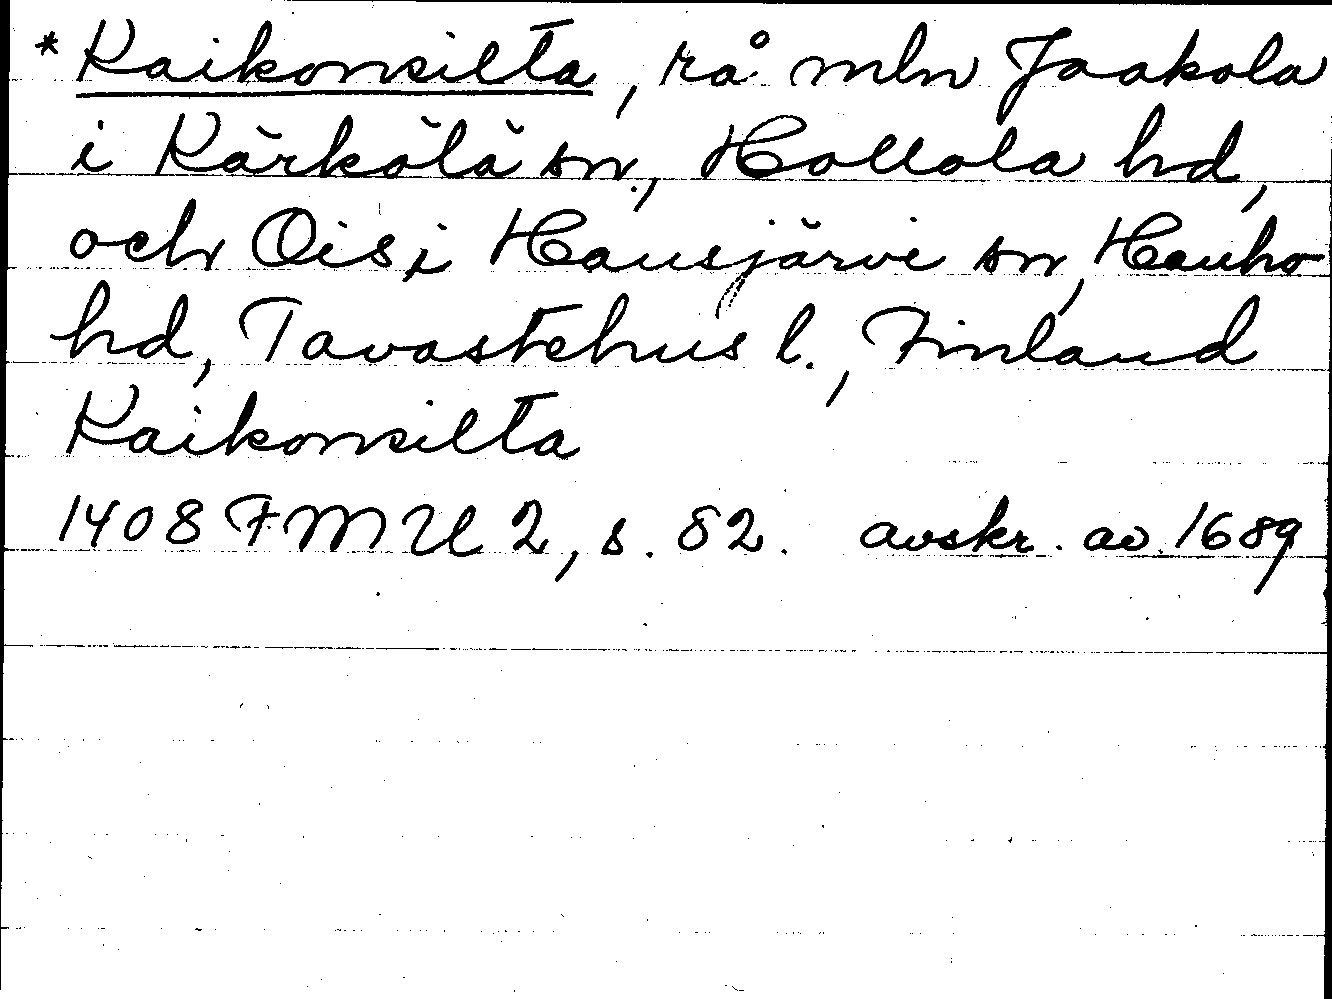 * Kaikonsilta, rå mln Jaakola
i Kärkölä sn., Hollola hd,
och Ois i Hausjärvi sn, Hauho
hd, Tavastehus l., Finland
Kaikonsilta
1408 FMU 2, s. 82. avskr. av 1689